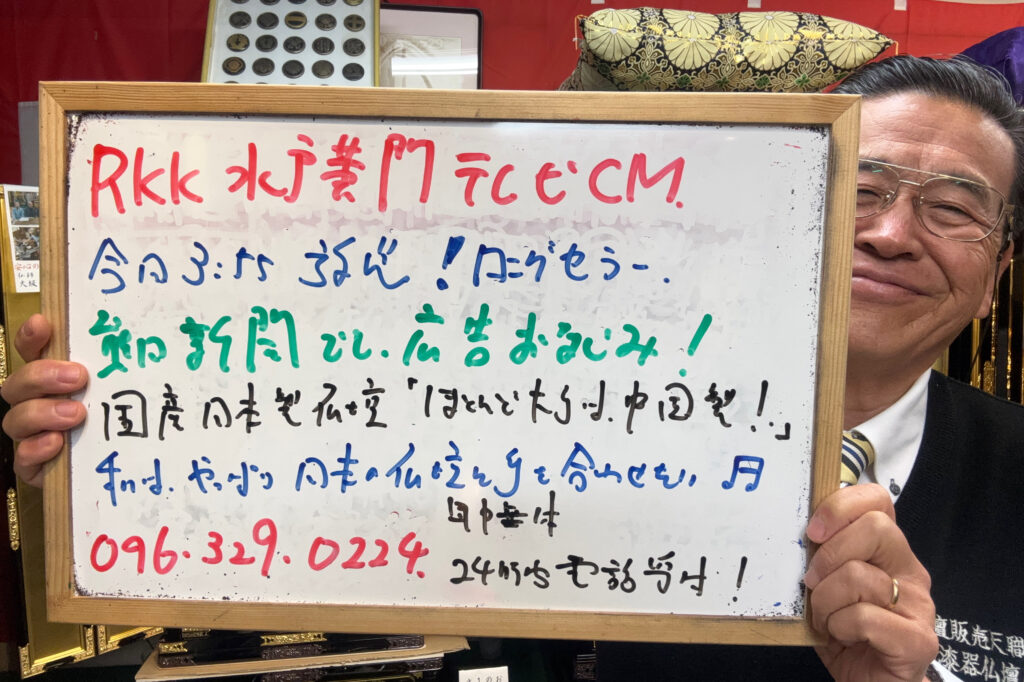 RKK 水戸黄門 テレビCM.
今日3:55 放送!ロングセラー.
熊日新聞でし、広告おなじみ!
国産日本製仏壇「ほとんど大手は、中国製!」
私は、やっぱり日本の仏壇に手を合わせたい
年中無休
096.329.0224.
24時間電話受付!
販売天職
漆器仏壇